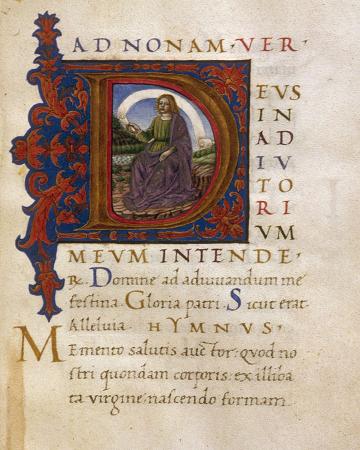 AD NONAM·VER
DEVS
IN
AD
IV
TO
RI
VM
MEVM INTENDE·
R. Domine ad adiuuandum me
festina. Gloria patri. Sicut erat
Alleluia· HYMNVS·
MEmento salutis auctor: quod no
stri quondam corporis: ex illiba
ta virgine nascendo formam